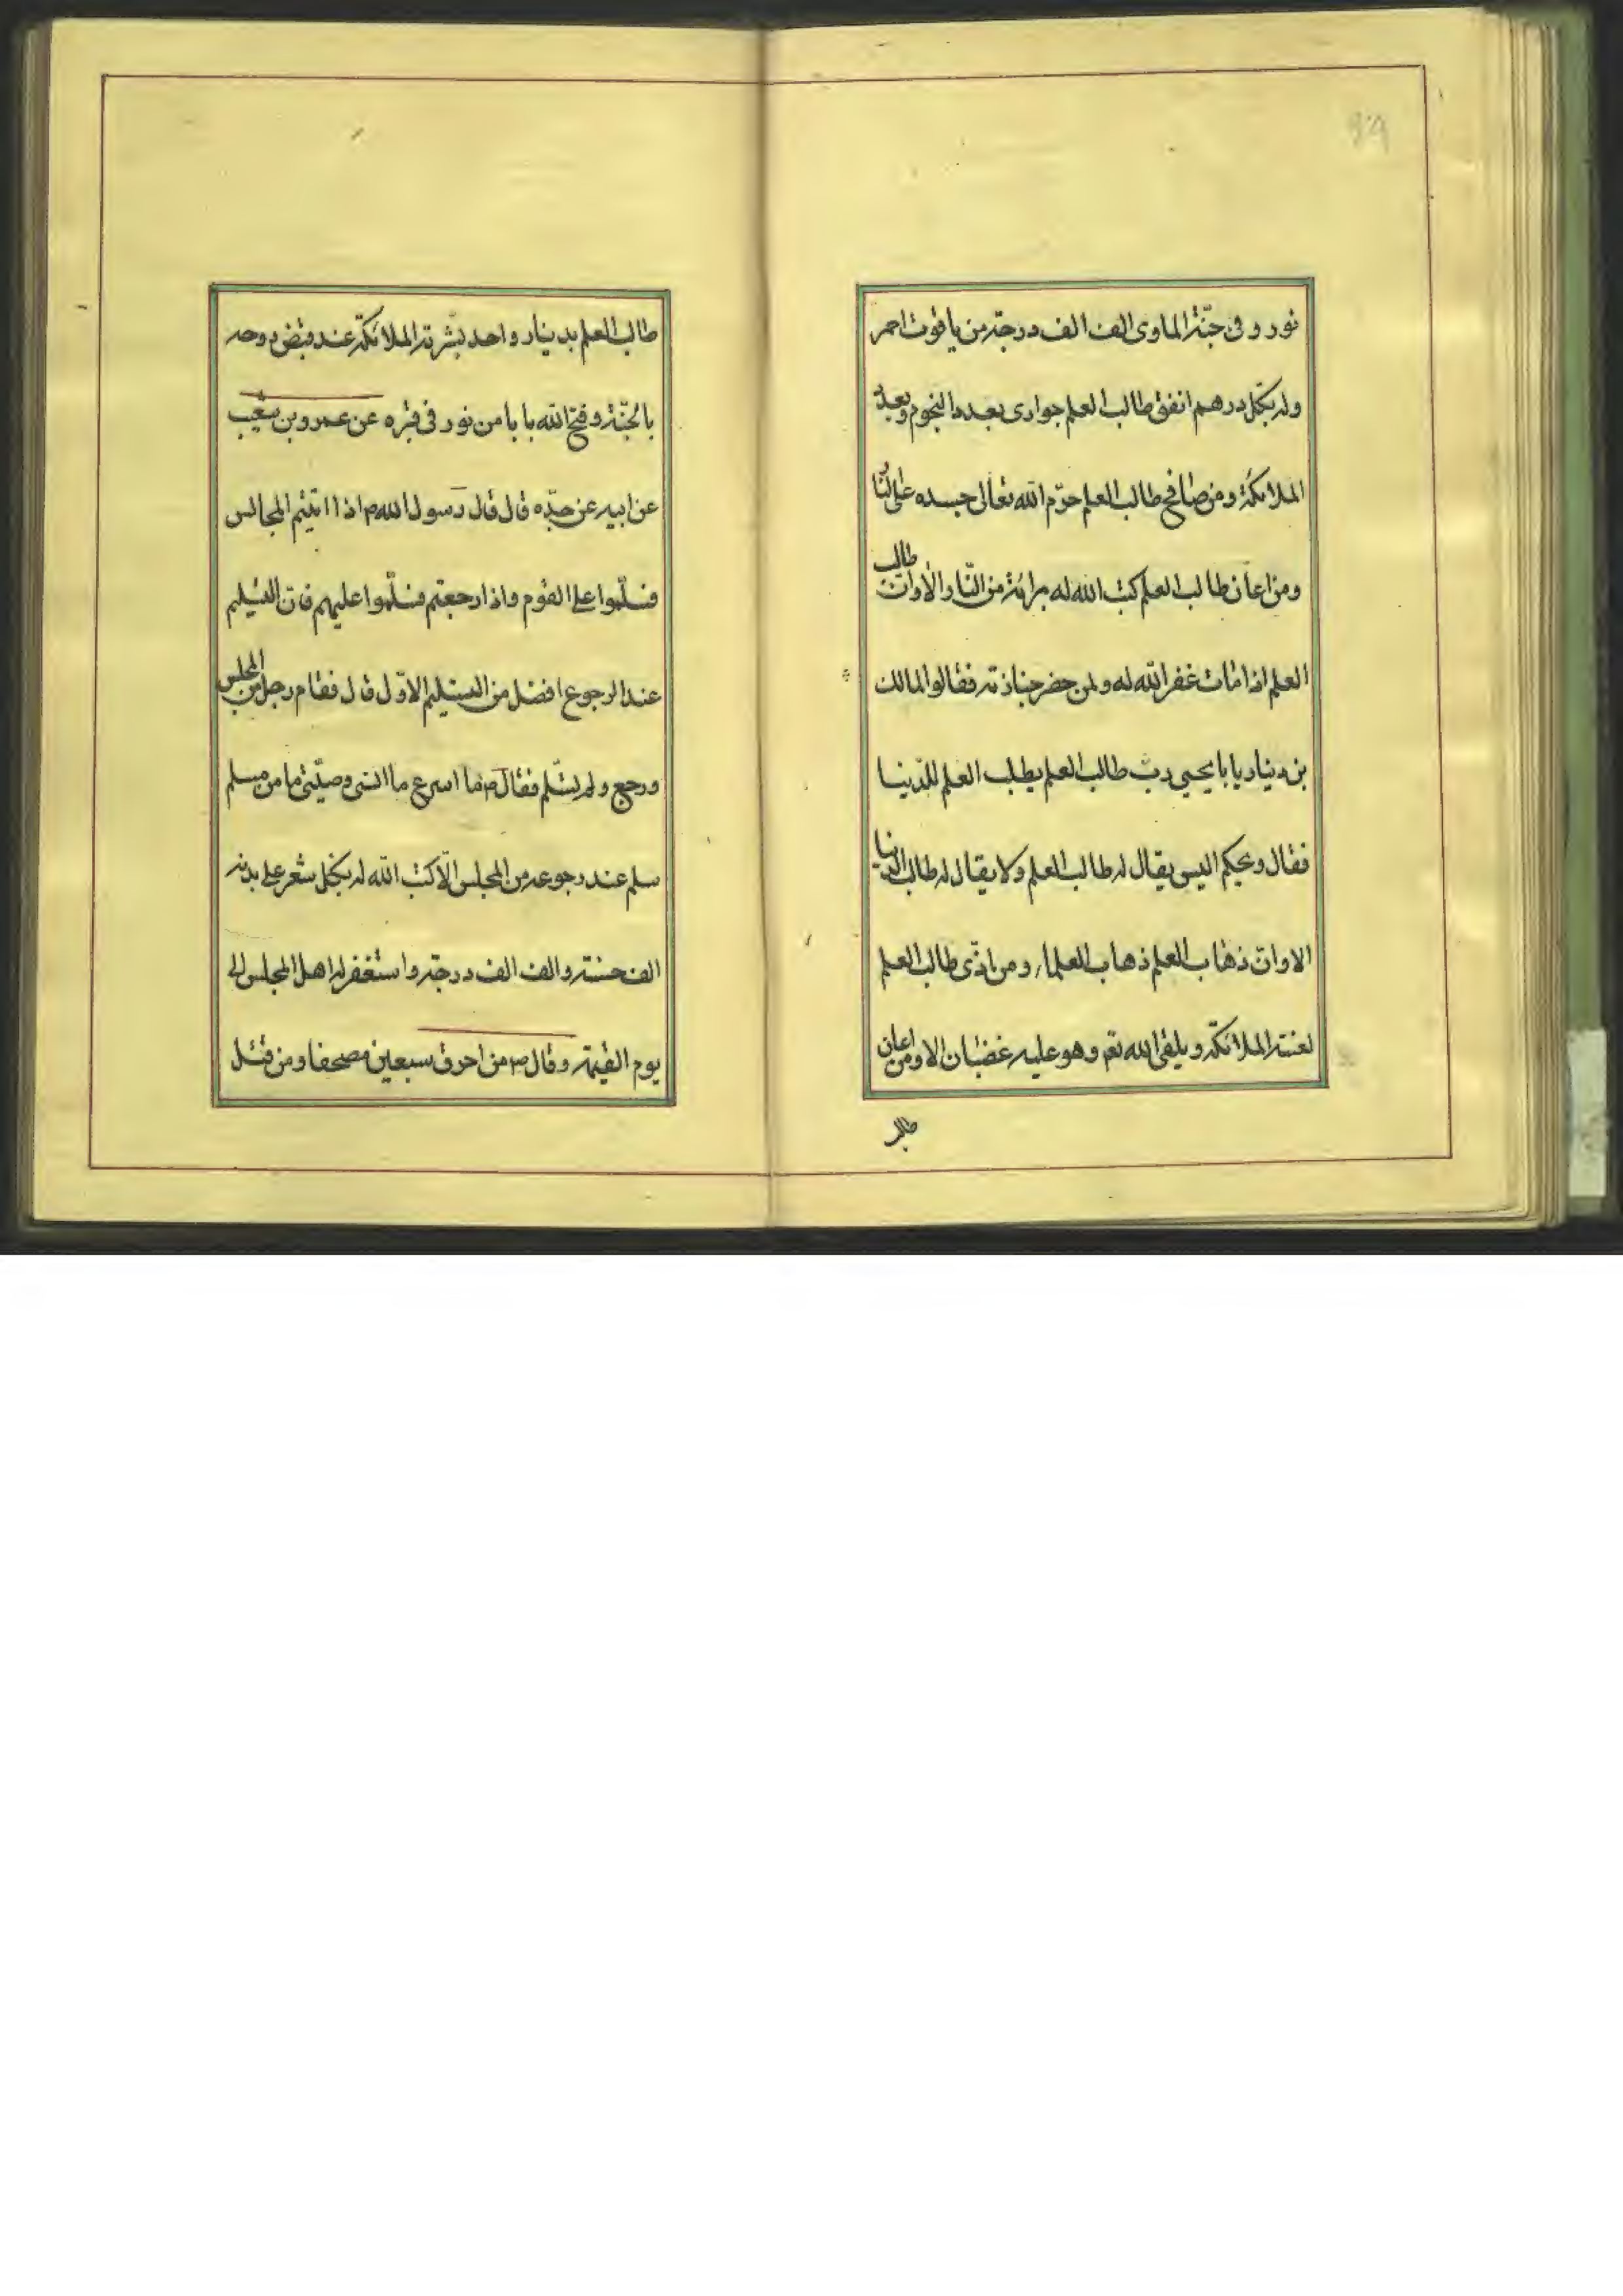 نور و فی جنّة الماوی الف الف درجة من یاقوت احمر
وله بکل درهم انفق طالب العلم جواری بعدد النجوم وبعدد
الملائکة ومن صافح طالب العلم حرّم الله تعالی جسده علی النار
ومن اعان طالب العلم کتب الله له برائة من النّار الا وانّ طالب
العلم اذا مات غفر الله له ولمن حضر جنازته فقالوا لمالك
بن دینار یا با یحیی ربّ طالب العلم یطلب العلم للدّنیا
فقال ویحکم الیس یقال له طالب العلم ولا یقال له طالب الدّنیا
الا وانّ ذهاب العلم ذهاب العلماء ومن اذّی طالب العلم
لعنته الملائکة ویلقی الله تعم وهو علیه غضبان الا ومن اعان
طالب
طالب العلم بدینار واحد بشّرته الملائکة عند قبض روحه
بالجنّة وفتح الله بابا من نور فی قبره عن عمرو بن شعیب
عن ابیه عن جدّه قال قال رسول الله م اذا اتیتم المجالس
فسلّموا علی القوم واذا رجعتم فسلّموا علیهم فانّ التسلیم
عند الرجوع افضل من التسلیم الاوّل قال فقام رجل من المجلس
ورجع ولم یسلّم فقال ص ما اسرع ما انسی وصیّتی ما من مسلم
سلم عند رجوعه من المجلس الّا کتب الله له بکل شعر علی بدنه
الف حسنة والف الف درجة واستغفر له اهل المجلس الی
یوم القیمة وقال ص من احرق سبعین مصحفا ومن قتل